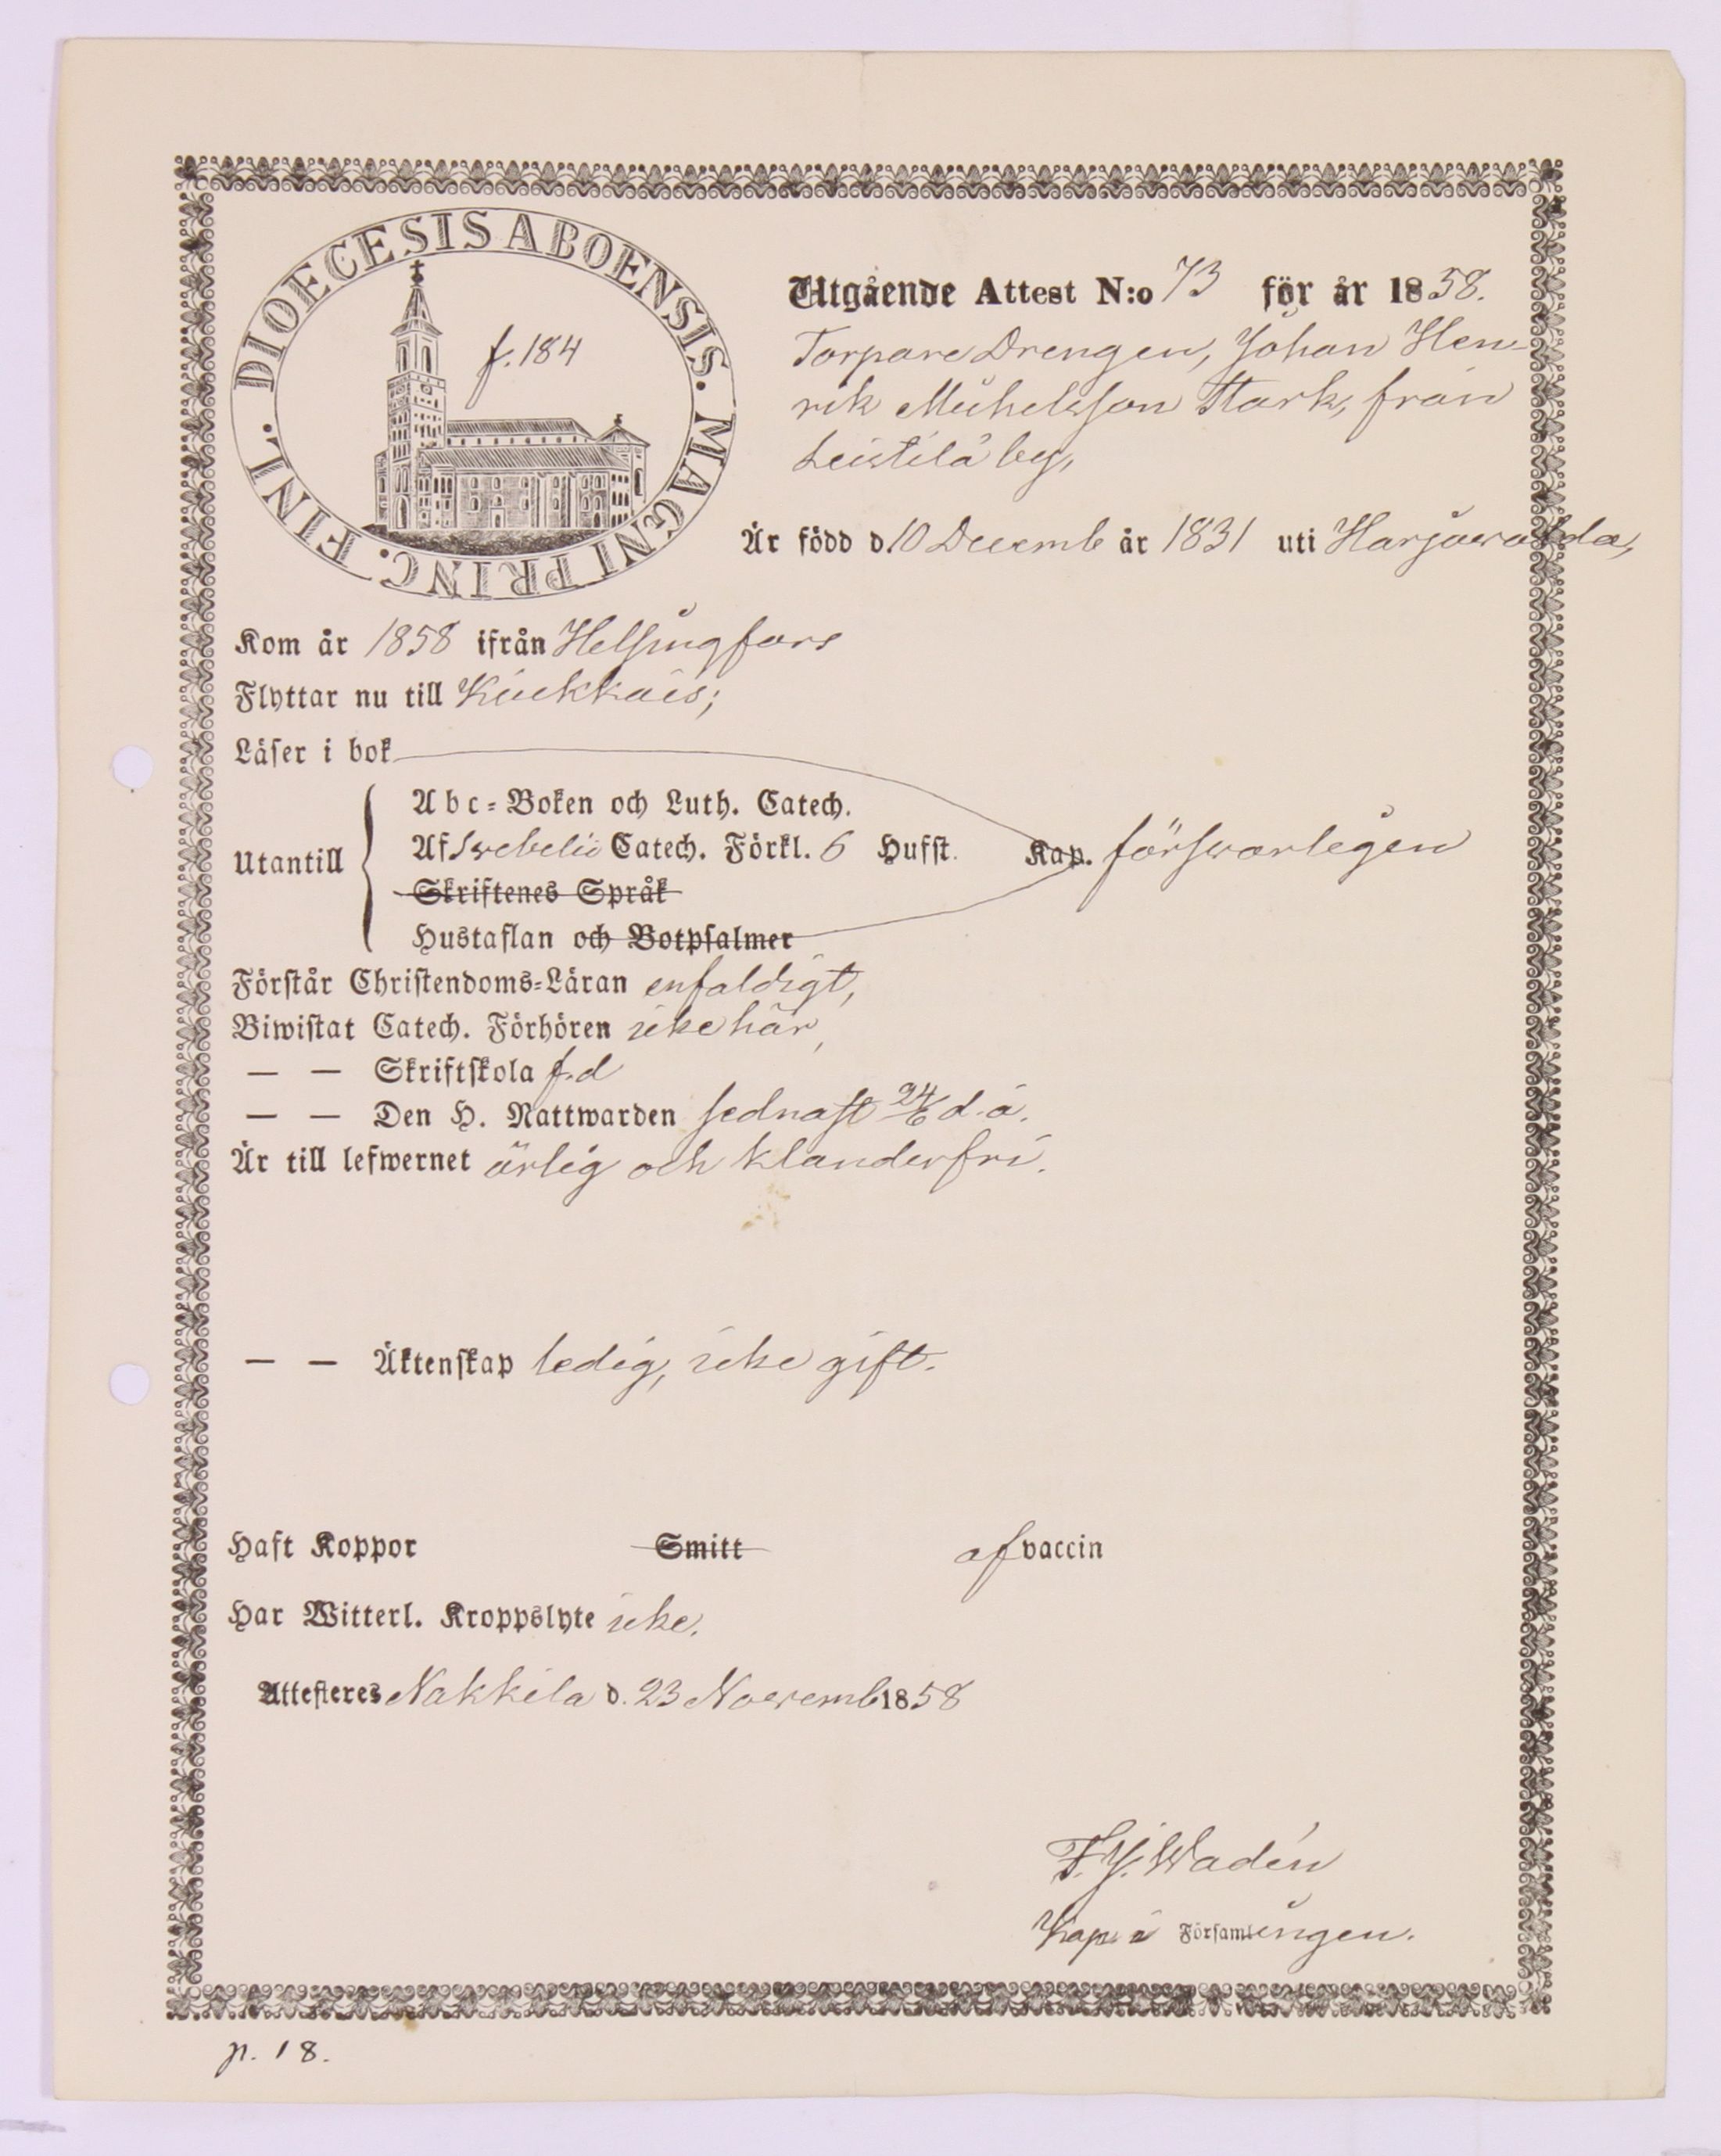 DIOECESIS ABOENSIS. MAGNI PRINC. FINL.
f. 184
Utgående Attest N:o 73 för år 1858.
Torpare Drengen, Johan Hen-
rik Michelsson Stark, från
Leistilä by,
Är född d 10 Decemb år 1831 uti Harjawalda,
Kom år 1858 ifrån Helsingfors
Flyttar nu till Kiukkais;
Läser i bok
Utantill
Abc-Boken och Luth. Catech.
Af Svebelii Catech. Förkl. 6 Hufst. Kap. försvarligen
Skriftenes Språk
Hustaflan och Botpsalmer
Förstår Christendoms-Läran enfaldigt,
Biwistat Catech. Förhören icke här,
— — Skriftskola f.d
— — Den H. Nattwarden sednast 24/6 d.å.
Är till lefwernet ärlig och klanderfri.
— — Äktenskap ledig, icke gift.
Haft Koppor Smitt af vaccin
Har Witterl. Kroppslyte icke.
Attesteres Nakkila d. 23 Novemb 1858
F. J. Wadén
Kap. i Församlingen.
p. 18.